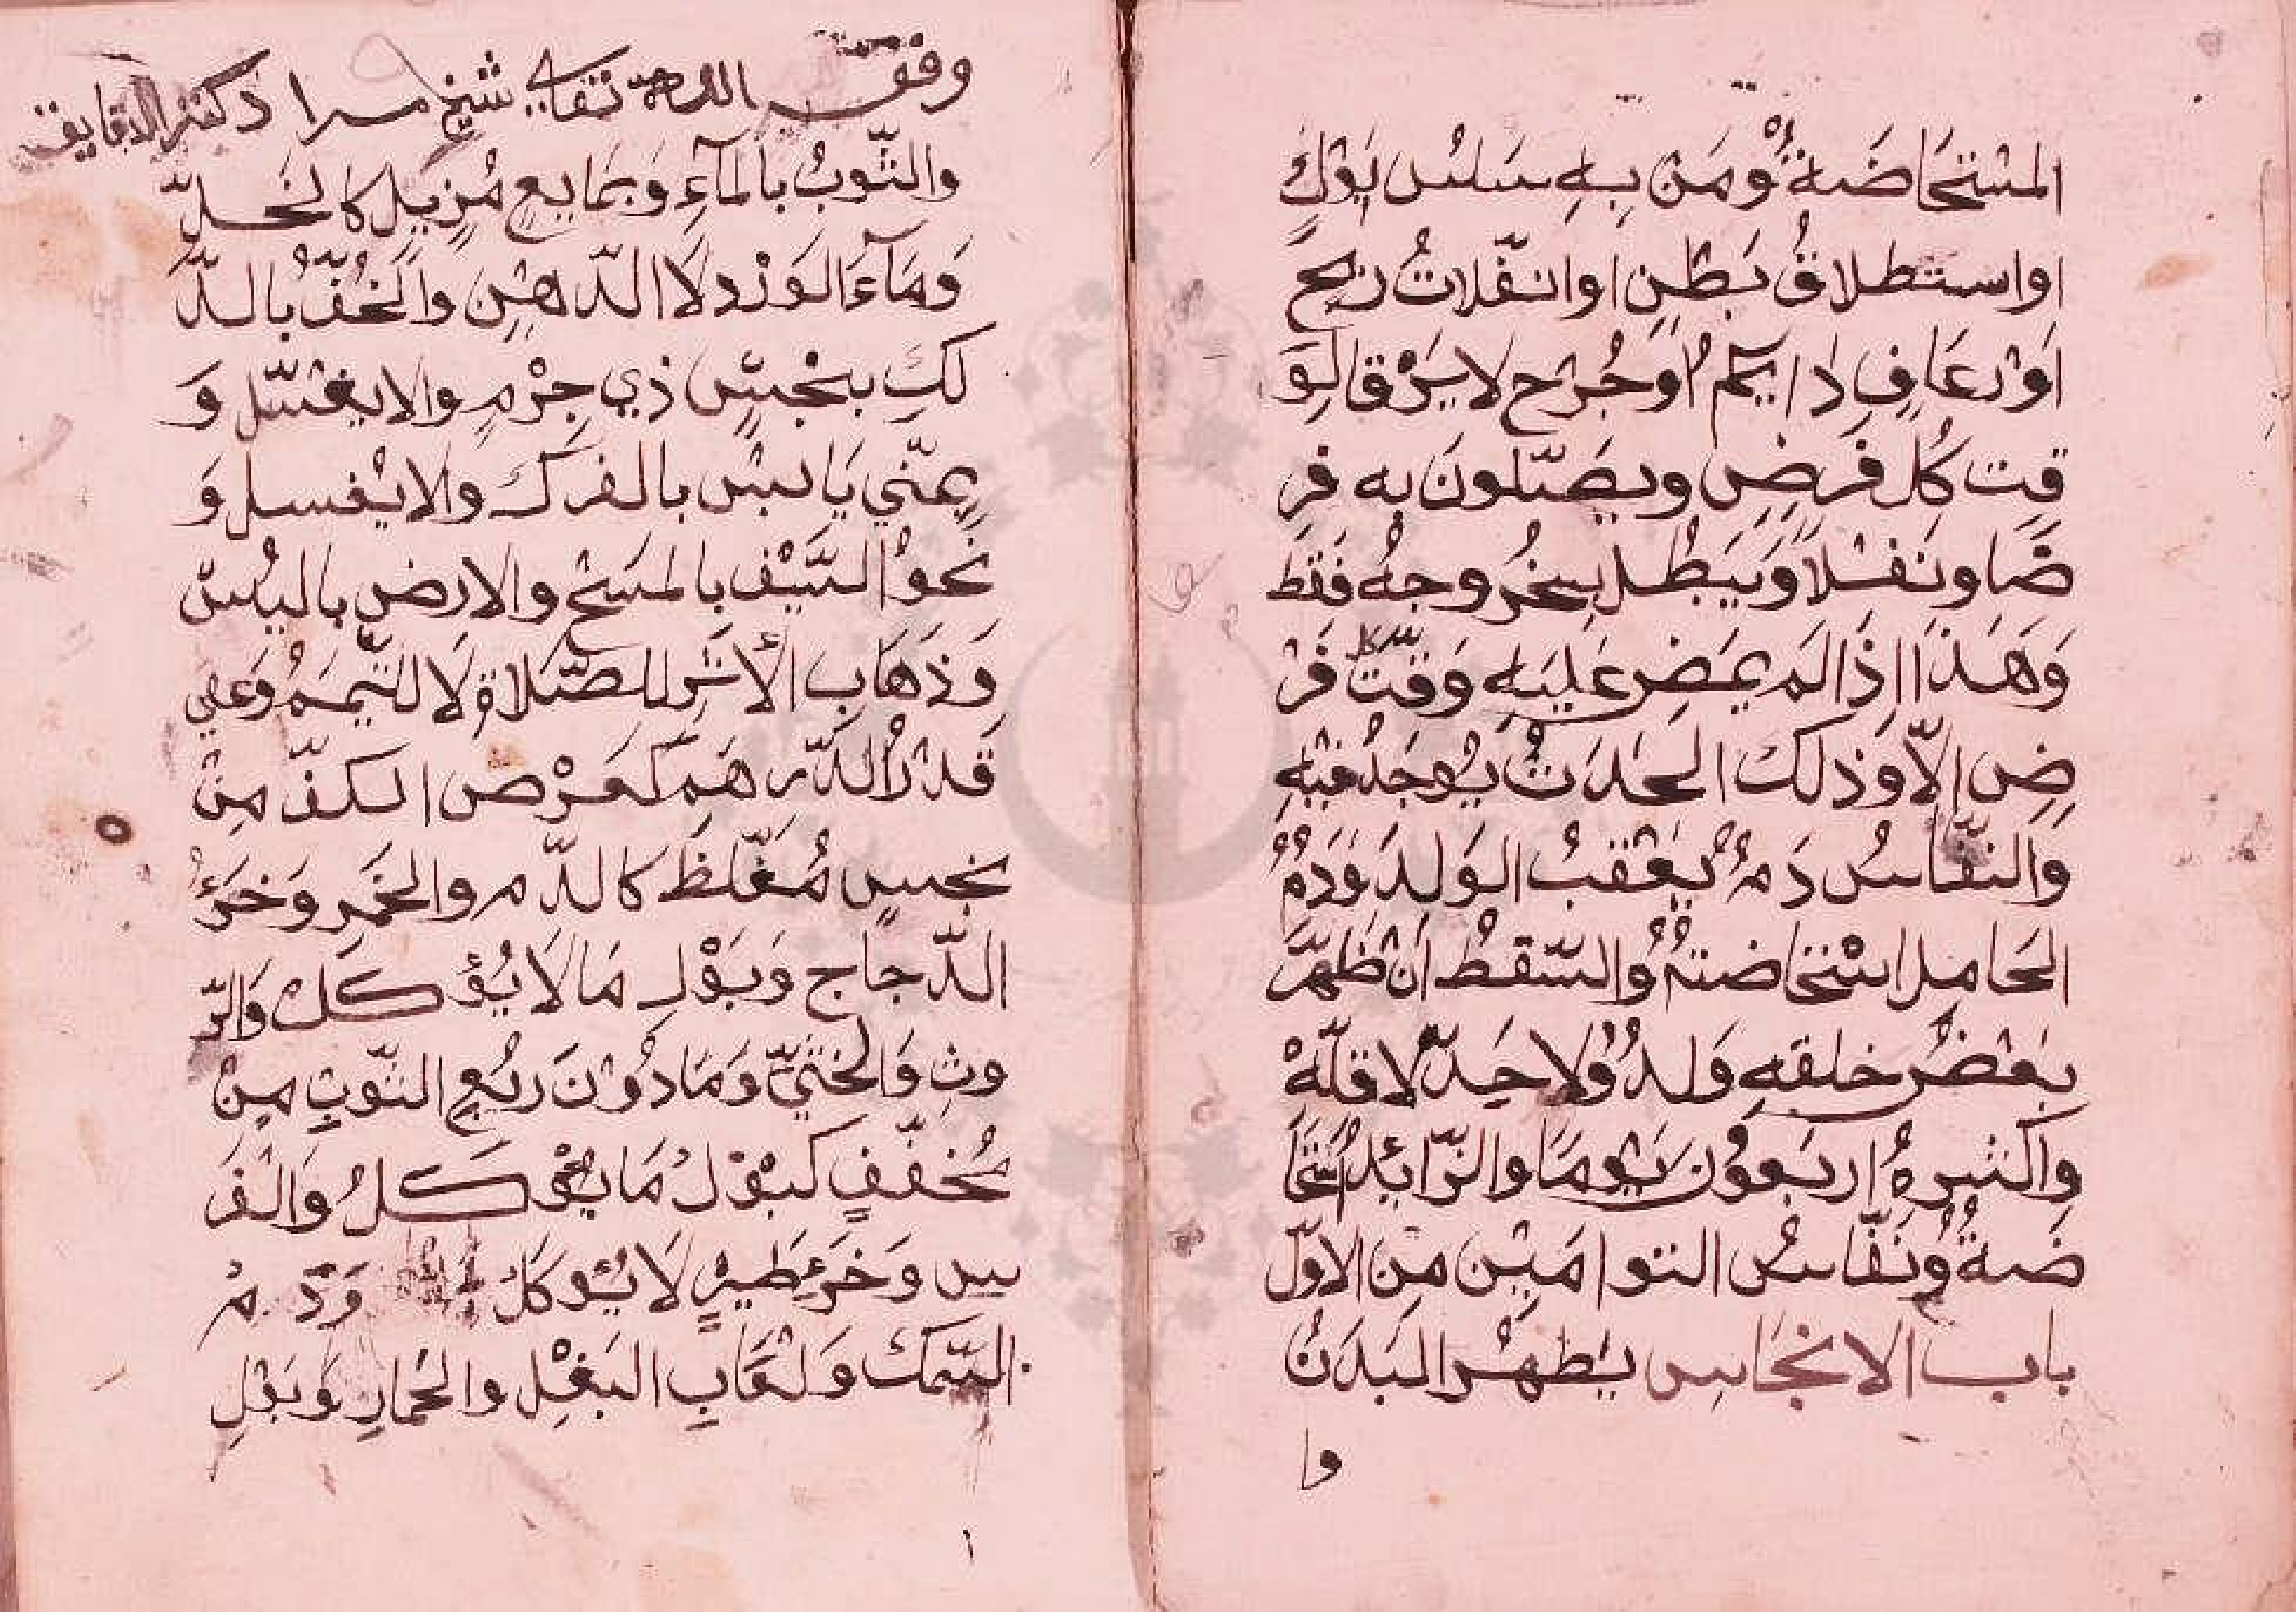 المستحَاضَةُ وَمَنْ بِهِ سَلسُ بَوْلٍ
اواستطلاقُ بَطْنٍ اوانفّلاتُ ريح
اَوْرعَافٍ دَايِمٌ اَوجُرْح لايَرْقَالِوَ
قتِ كُل فَرضٍ ويصَلّونَ به فر
ضًا ونَفْلاً وَيَبْطُل بخُروجهُ فَقَط
وَهَذَا اذَالَم يمَضِ عَليَهِ وَقتُ فَرْ
ضٍ اِلاّ وَذلكَ الحَدَثُ يُوجَدُ فيْهِ
وَالنفّاسُ دَمٌ يَعْقبُ الوَلدَ وَدَمُ
الحَامِل استْحَاضتهُ وَالسّقطُ اِنْ ظَهَرَ
بَعْضُ خلقهِ وَلدٌ وَلاحَدّ لاقلّهْ
وَاكثرهُ اربَعوُن يَومًا والزّائدُ استحَا
ضةٌ وَنفّاسُ التوامَيْن مِن الاوّل
باب الانجَاسِ يَطهُر البَدَنُ
وا
وقف الله تعالى شيخ ميرا دكنز الدقايق
والثّوبُ بالمآءِ وَبمَايعٍ مُزِيلٍ كالخَلّ
وَمَآءَ الوَرْد لَاالدّهْنِ وَالخُفّ بالدّ
لكِ بنْجسٍ ذي جِرْمٍ والايغسّل وَ
بِمَنّي يَابسٍ بالفَركْ والايْغسل وَ
نَحوُ السّيْف بالمسَح والارضِ باليُبس
وَذَهَابِ الأثرِ للصّلاةِ لَا للتّيمَمُ وَعفي
قَدْرُ الدّرهَمِ كَعَرْضِ الكفّ مِنْ
نجسٍ مُغلّظَ كالدّم والخَمرِ وَخرَءُ
الدّجاج وَبَوْل مَالَايُؤكلْ وَالرّ
وثِ وَالخثيّ وَمَادُوْنَ ربُعِ الثّوبِ مِنْ
مُخَفّفٍ كَبَوْلُ مَايؤكلُ وَالفَر
سِ وَخرَءِ طيرٍ لَايُؤكل وَدَمُ
السّمَكَ وَلُعَابِ البَغلِ والحمَارِ وَبَوْلٍ
١